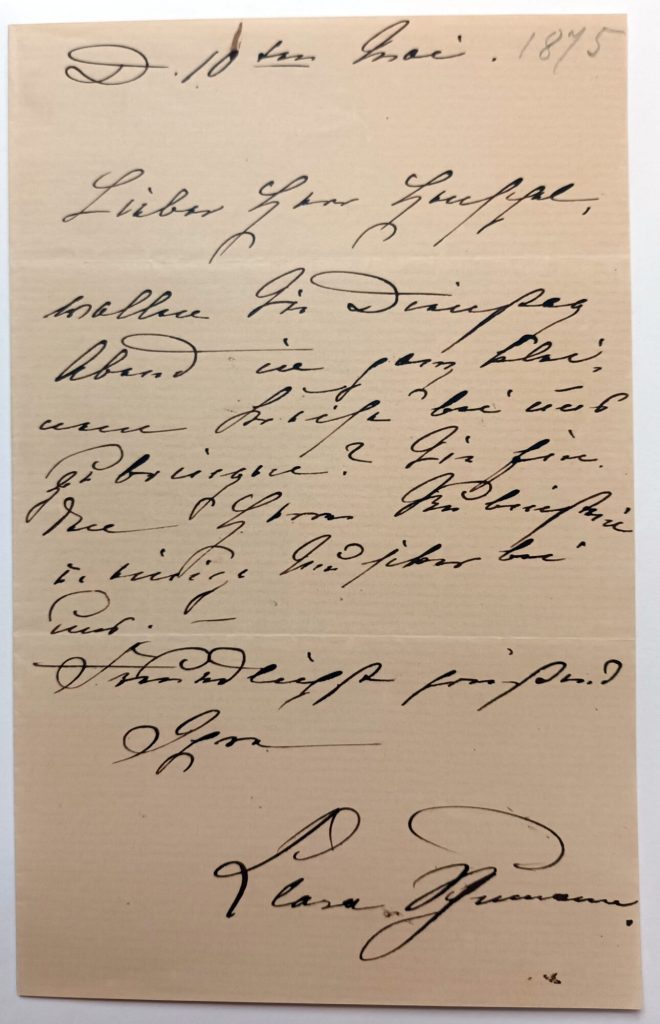 D. 10ten Mai. 1875
Lieber Herr Henschel,
wollen Sie Dienstag
Abend in ganz klei-
nem Kreise bei uns
zubringen? Sie fin-
den Herrn Rubinstein
u. einige Musiker bei
uns. –
Freundlichst grüßend
Ihre
Clara Schumann.